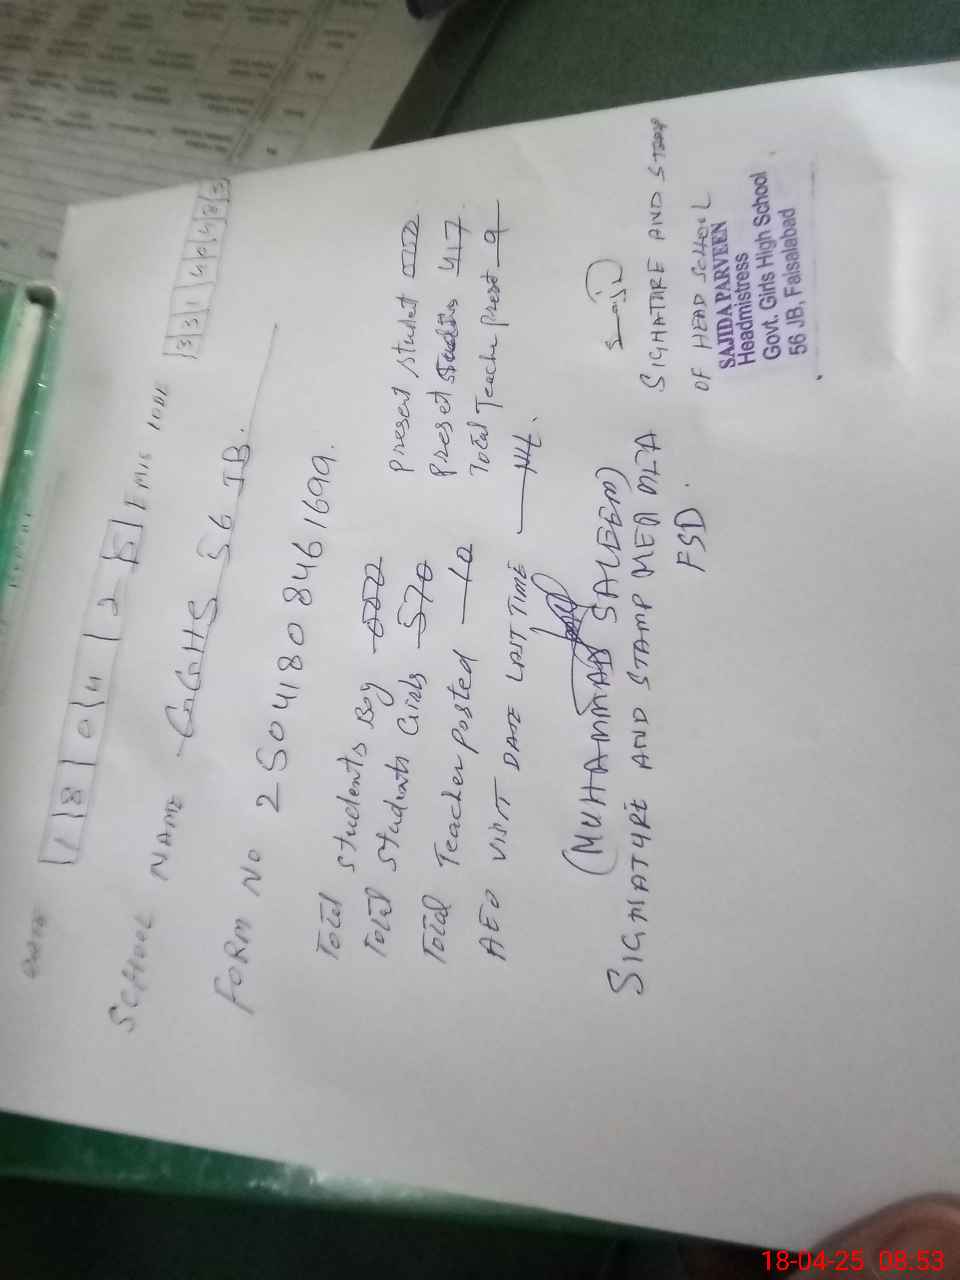 DATE 18 04 25 EMIS CODE 33140483
SCHOOL NAME GGHS 56 JB.
FORM NO 2504180 8461699.
Total Students Boy 000 present student 000
Total Students Girls 570 preset 417
Total Teacher Posted 10 Total Teache preset 9
AEO VISIT DATE LAST TIME NIL.
(MUHAMMAD SALEEM)
SIGNATURE AND STAMP MEA
FSD.
SIGNATURE AND STAMP
OF HEAD SCHOOL
SAJIDA PARVEEN
Headmistress
Govt. Girls High School
56 JB, Faisalabad
18-04-25 08:53